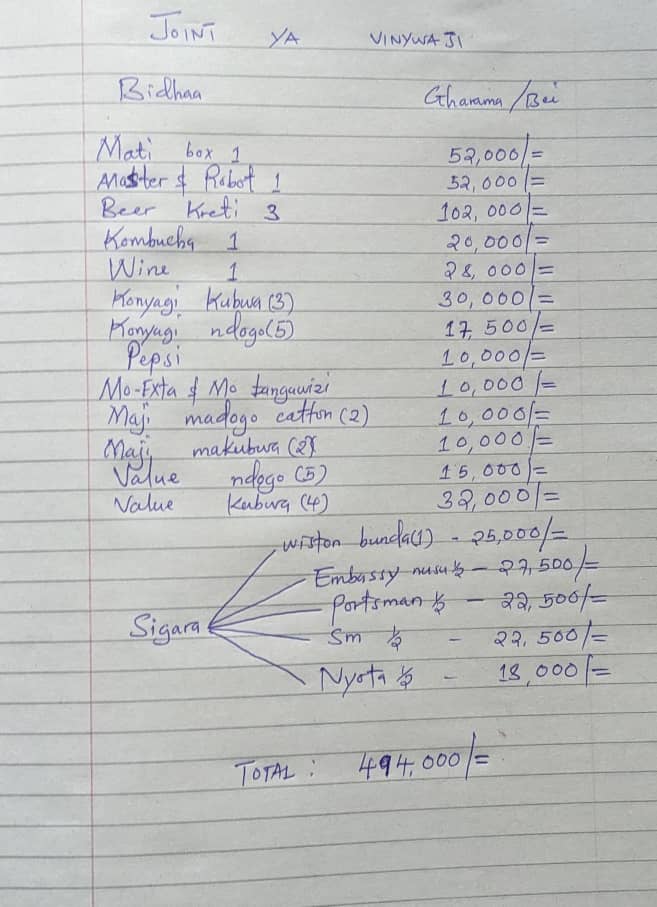 JOINT YA VINYWAJI
Bidhaa Gharama/Bei
Mati box 1 52,000/=
Master & Robot 1 52,000/=
Beer Kreti 3 102,000/=
Kombucha 1 20,000/=
Wine 1 28,000/=
Konyagi Kubwa (3) 30,000/=
Konyagi ndogo(5) 17,500/=
Pepsi 10,000/=
Mo-Exta & Mo tangawizi 10,000/=
Maji madogo catton (2) 10,000/=
Maji makubwa (2) 10,000/=
Value ndogo (5) 15,000/=
Value Kubwa (4) 32,000/=
wiston bunda(1) - 25,000/=
Embassy nusu ½ - 27,500/=
Portsman ½ - 22,500/=
Sigara
Sm ½ - 22,500/=
Nyota ½ - 18,000/=
TOTAL : 494,000/=